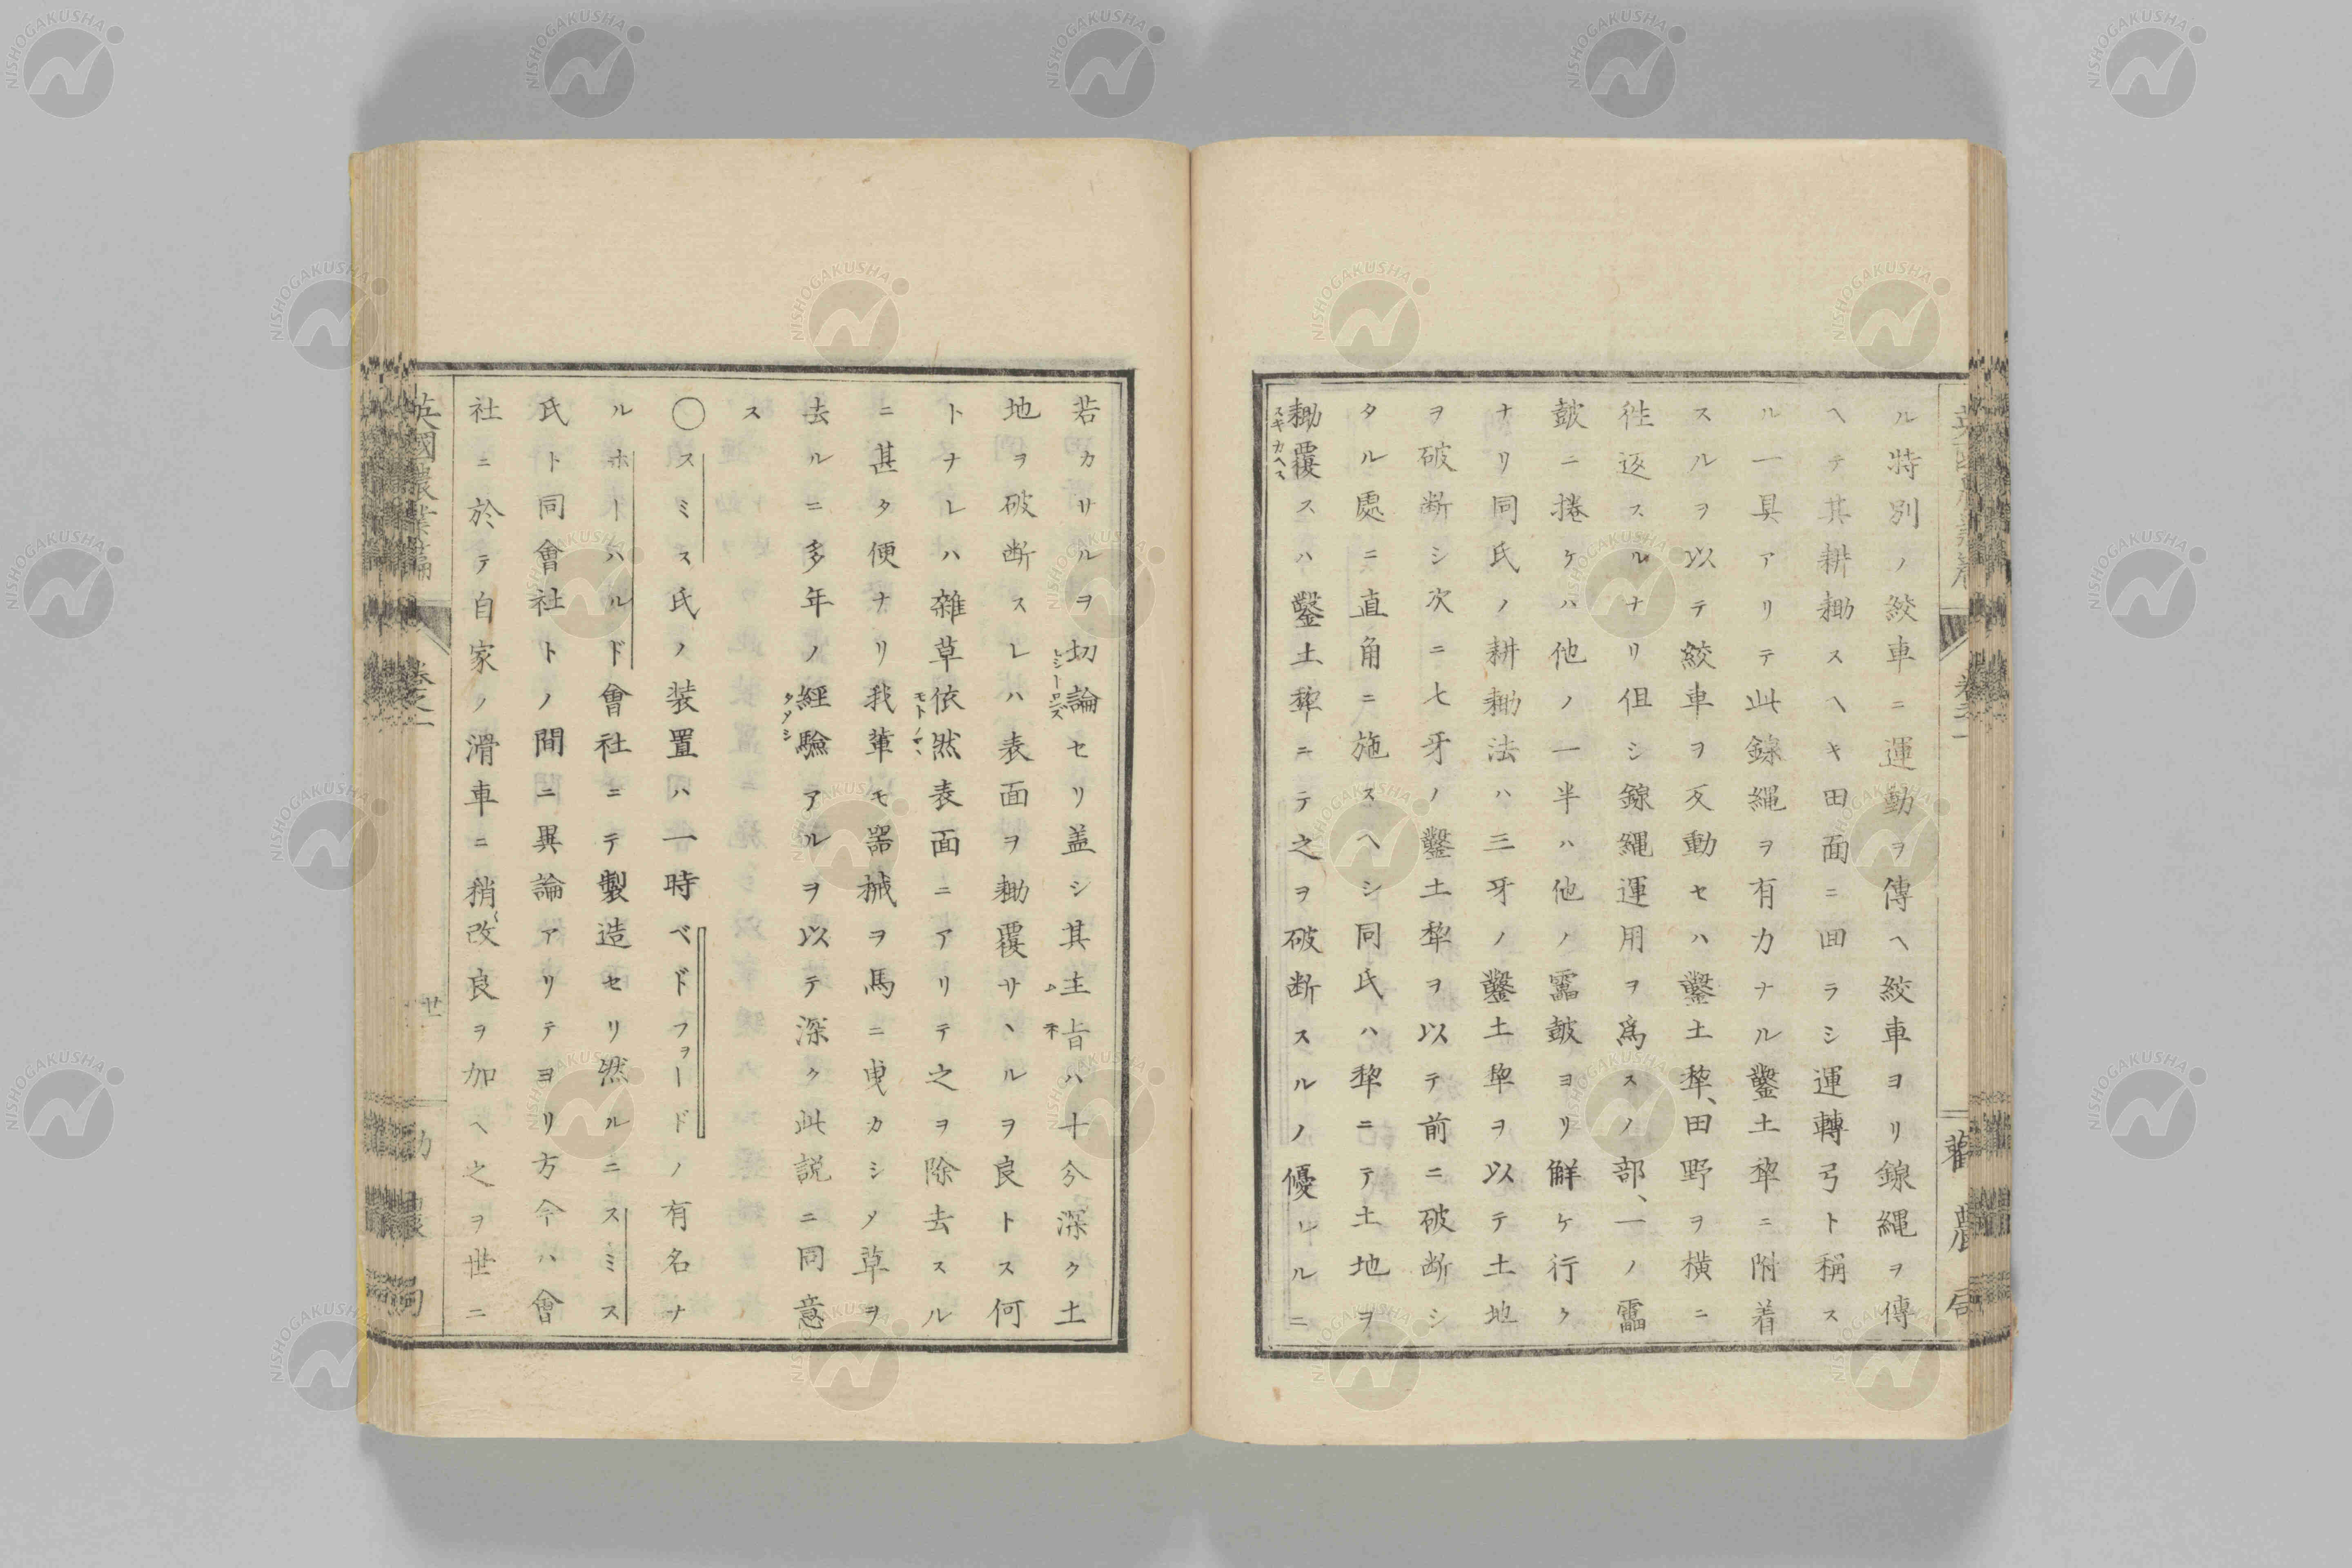 ル特別ノ絞車ニ運動ヲ傳ヘ絞車ヨリ鎳縄ヲ傳
ヘテ其耕耡スヘキ田面ニ囬ラシ運轉弓ト稱ス
ル一具アリテ此鎳縄ヲ有力ナル鑿土犂ニ附着
スルヲ以テ絞車ヲ反動セハ鑿土犂、田野ヲ横ニ
徃返スルナリ但シ鎳縄運用ヲ爲スノ部、一ノ
皷ニ捲ケハ他ノ一半ハ他ノ皷ヨリ觧ケ行ク
ナリ同氏ノ耕耡法ハ三牙ノ鑿土犂ヲ以テ土地
ヲ破断シ次ニ七牙ノ鑿土犂ヲ以テ前ニ破断シ
タル處ニ直角ニ施スヘシ同氏ハ犂ニテ土地ヲ
耡覆スハ鑿土犂ニテ之ヲ破断スルノ優レルニ
スキカヘス
若カサルヲ切論セリ盖シ其主旨ハ十分深ク土
地ヲ破断スレハ表面ヲ耡覆サヽルヲ良トス何
トナレハ雑草依然表面ニアリテ之ヲ除去スル
ニ甚タ便ナリ我軰モ器械ヲ馬ニ曵カシメ草ヲ
去ルニ多年ノ經驗アルヲ以テ深ク此説ニ同意
タメシ
ス
〇スミス氏ノ装置ハ一時ベドフォードノ有名ナ
ルホーハルド會社ニテ製造セリ然ルニスミス
氏ト同會社トノ間ニ異論アリテヨリ方今ハ會
社ニ於テ自家ノ滑車ニ稍改良ヲ加ヘ之ヲ世ニ
英國農業篇
卷之一
廿
勸農局